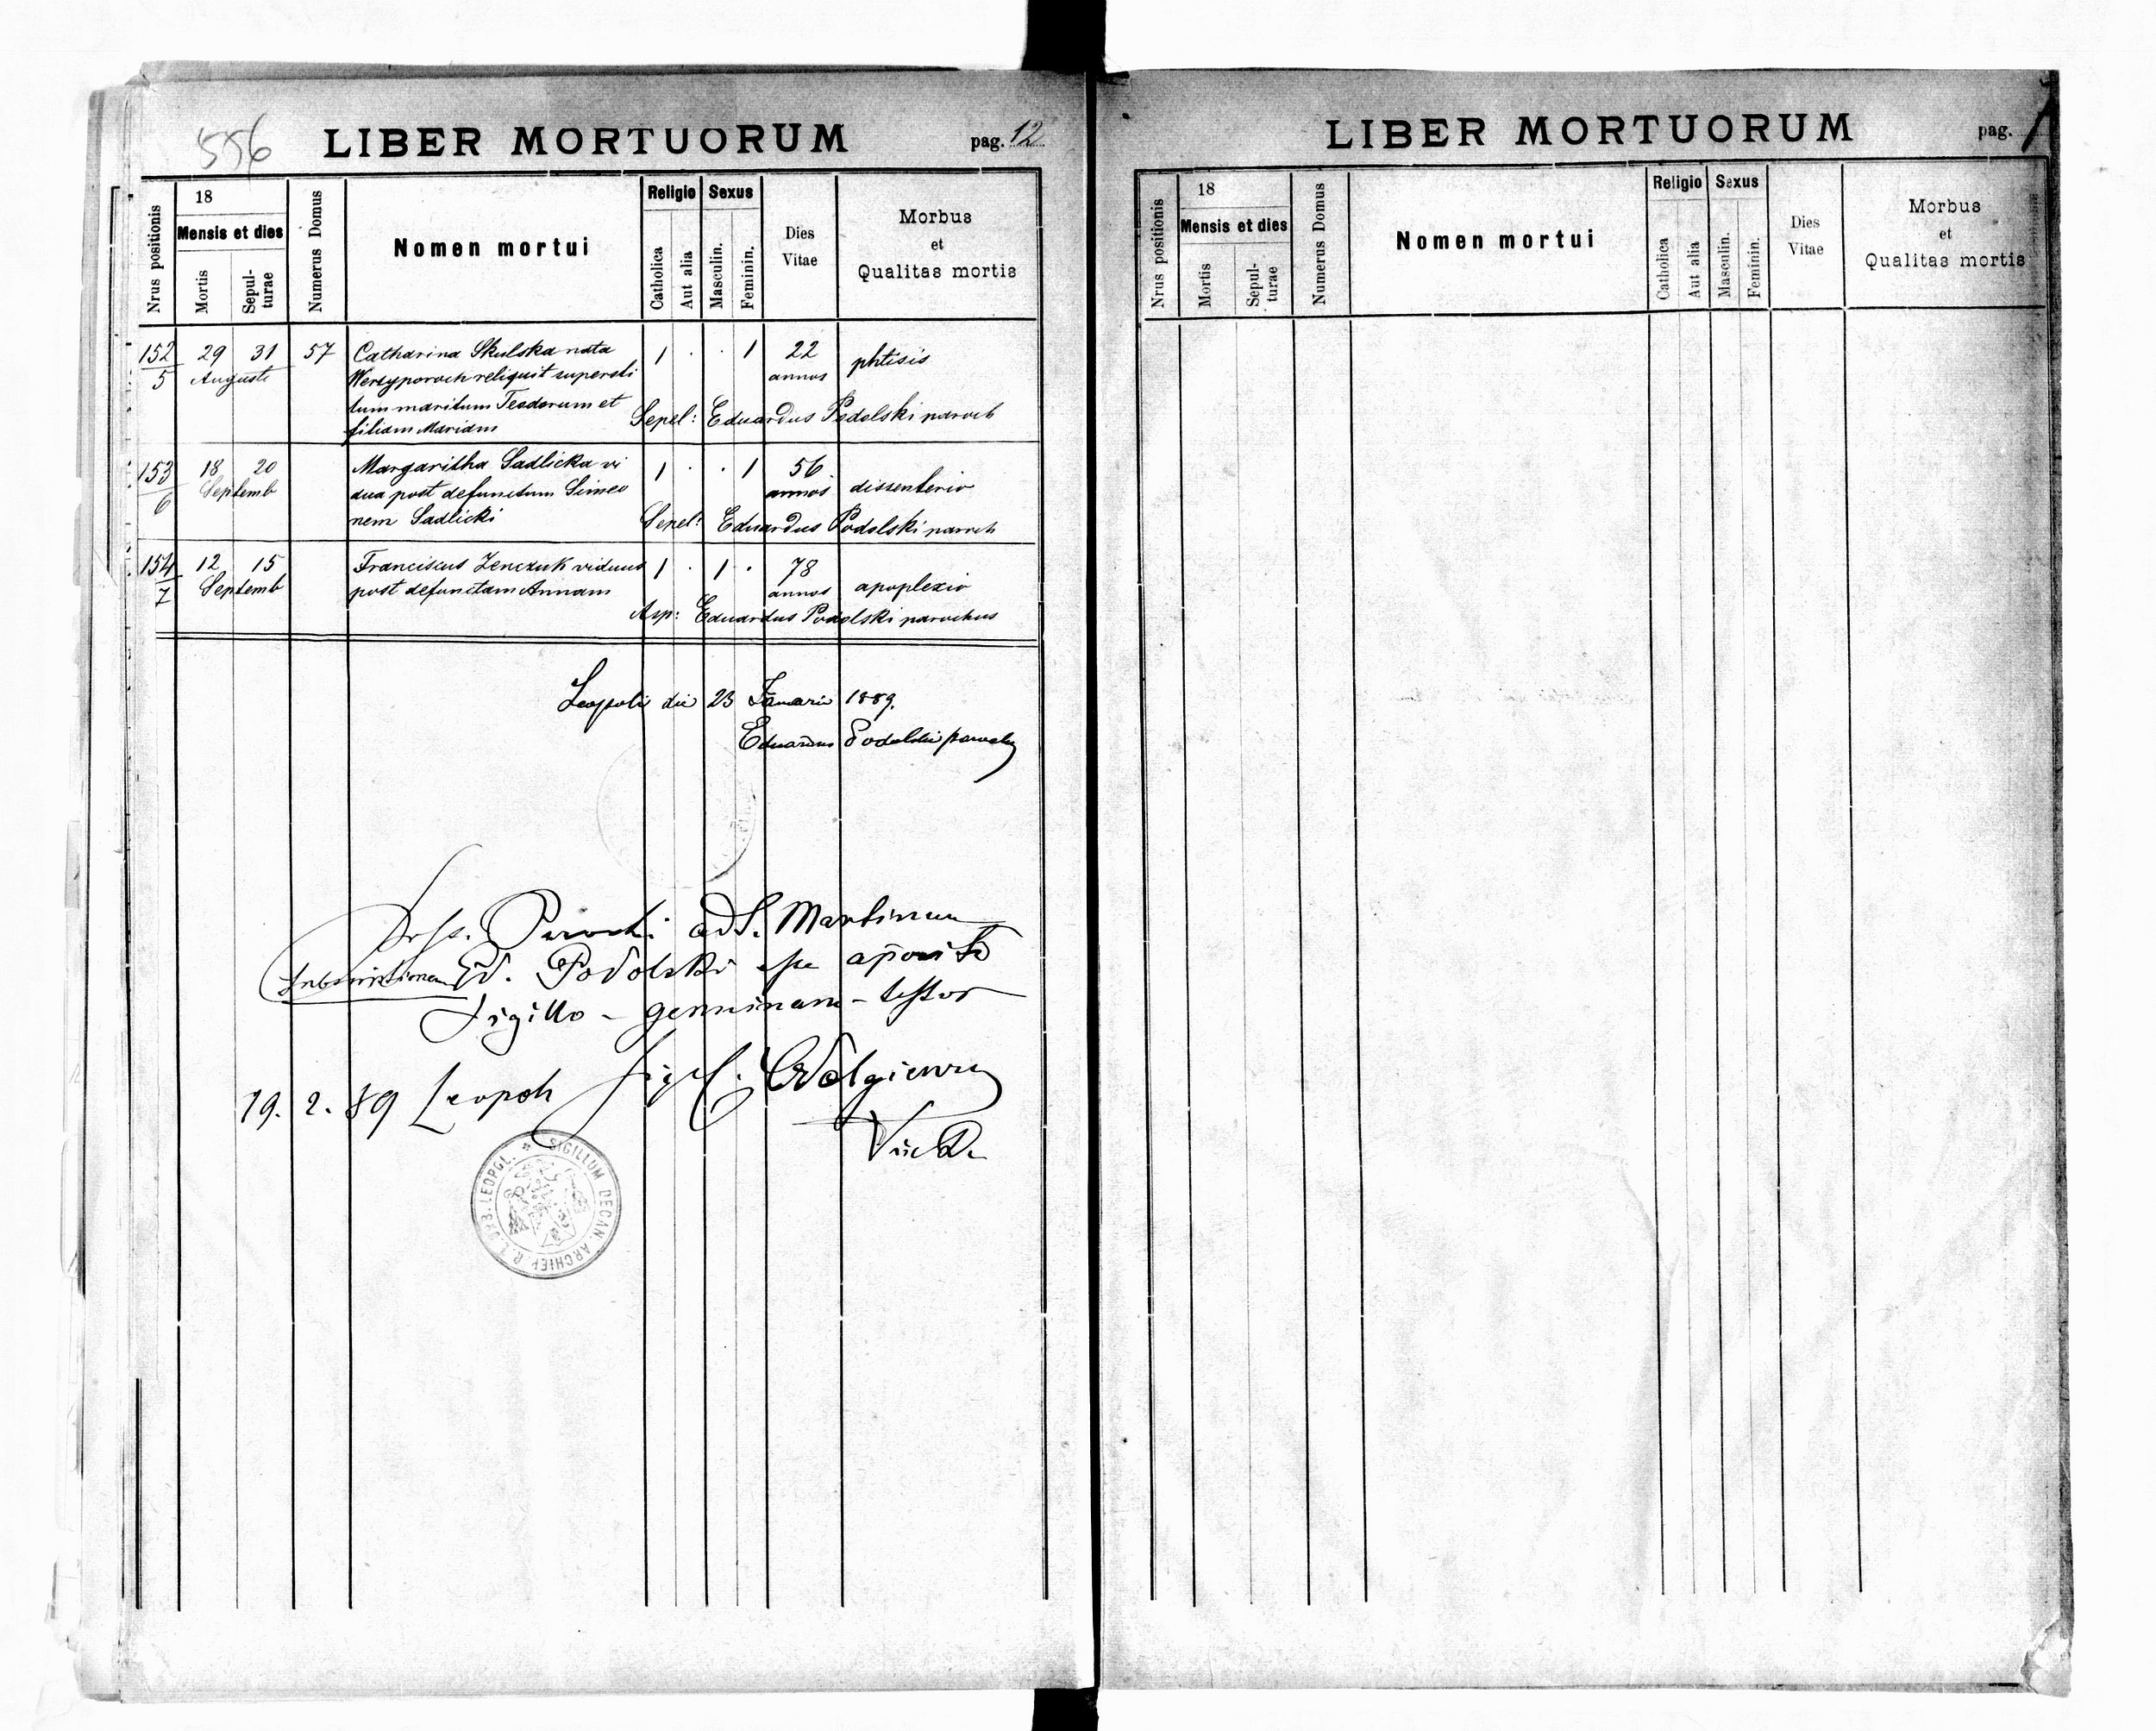 556
LIBER MORTUORUM
pag. 12
Nrus positionis
18
Mensis et dies
Mortis
Sepul-
turae
Numerus Domus
Nomen mortui
Religio
Catholica
Aut alia
Sexus
Masculin.
Feminin.
Dies
Vitae
Morbus
et
Qualitas mortis
152 29 31 57 Catharina Skulska nata 1 . . 1 22 phtisis
5 Augusti Werzyporoch reliquit supersti annos
tum maritum Teodorum et Sepel: Eduardus Podolski paroch
filiam Mariam
153 18 20 Margaritha Sadlicka vi 1 . . 1 56
6 Septemb dua post defunctum Simeo annos dissenterio
nem Sadlicki Sepel: Eduardus Podolski paroch
154 12 15 Franciscus Zenczuk viduus 1 . 1 . 78
7 Septemb post defunctam Annam annos apoplexio
Asp: Eduardus Podolski parochus
Leopoli die 23 Januarii 1889.
Eduardus Podolski paroch
Parochi ad S. Martinum
Subscriptionem Ed. Podolski esse
Sigillo - genuinam - testor
19. 2. 89 Leopoli
SIGILLUM DECAN. ARCHIEP. R. L. URB. LEOPOL.
LIBER MORTUORUM
pag.
Nrus positionis
18
Mensis et dies
Mortis
Sepul-
turae
Numerus Domus
Nomen mortui
Religio
Catholica
Aut alia
Sexus
Masculin.
Feminin.
Dies
Vitae
Morbus
et
Qualitas mortis